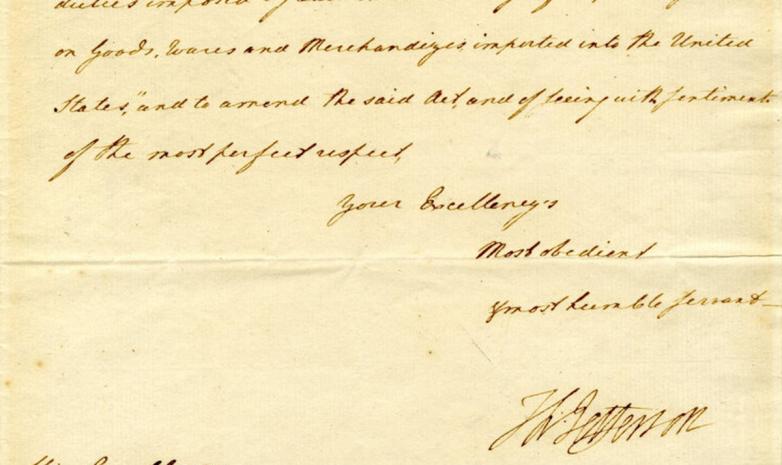 duties imposed
on Goods, Wares and Merchandizes imported into the United
States," and to amend the said Act, and of being with sentiments
of the most perfect respect,
Your Excellency's
Most obedient
& most humble servant
Th: Jefferson
His